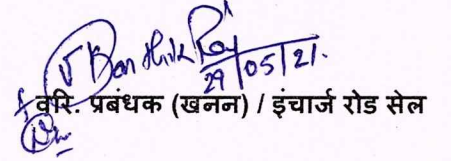 29/05/21.
वरि. प्रबंधक (खनन) / इंचार्ज रोड सेल